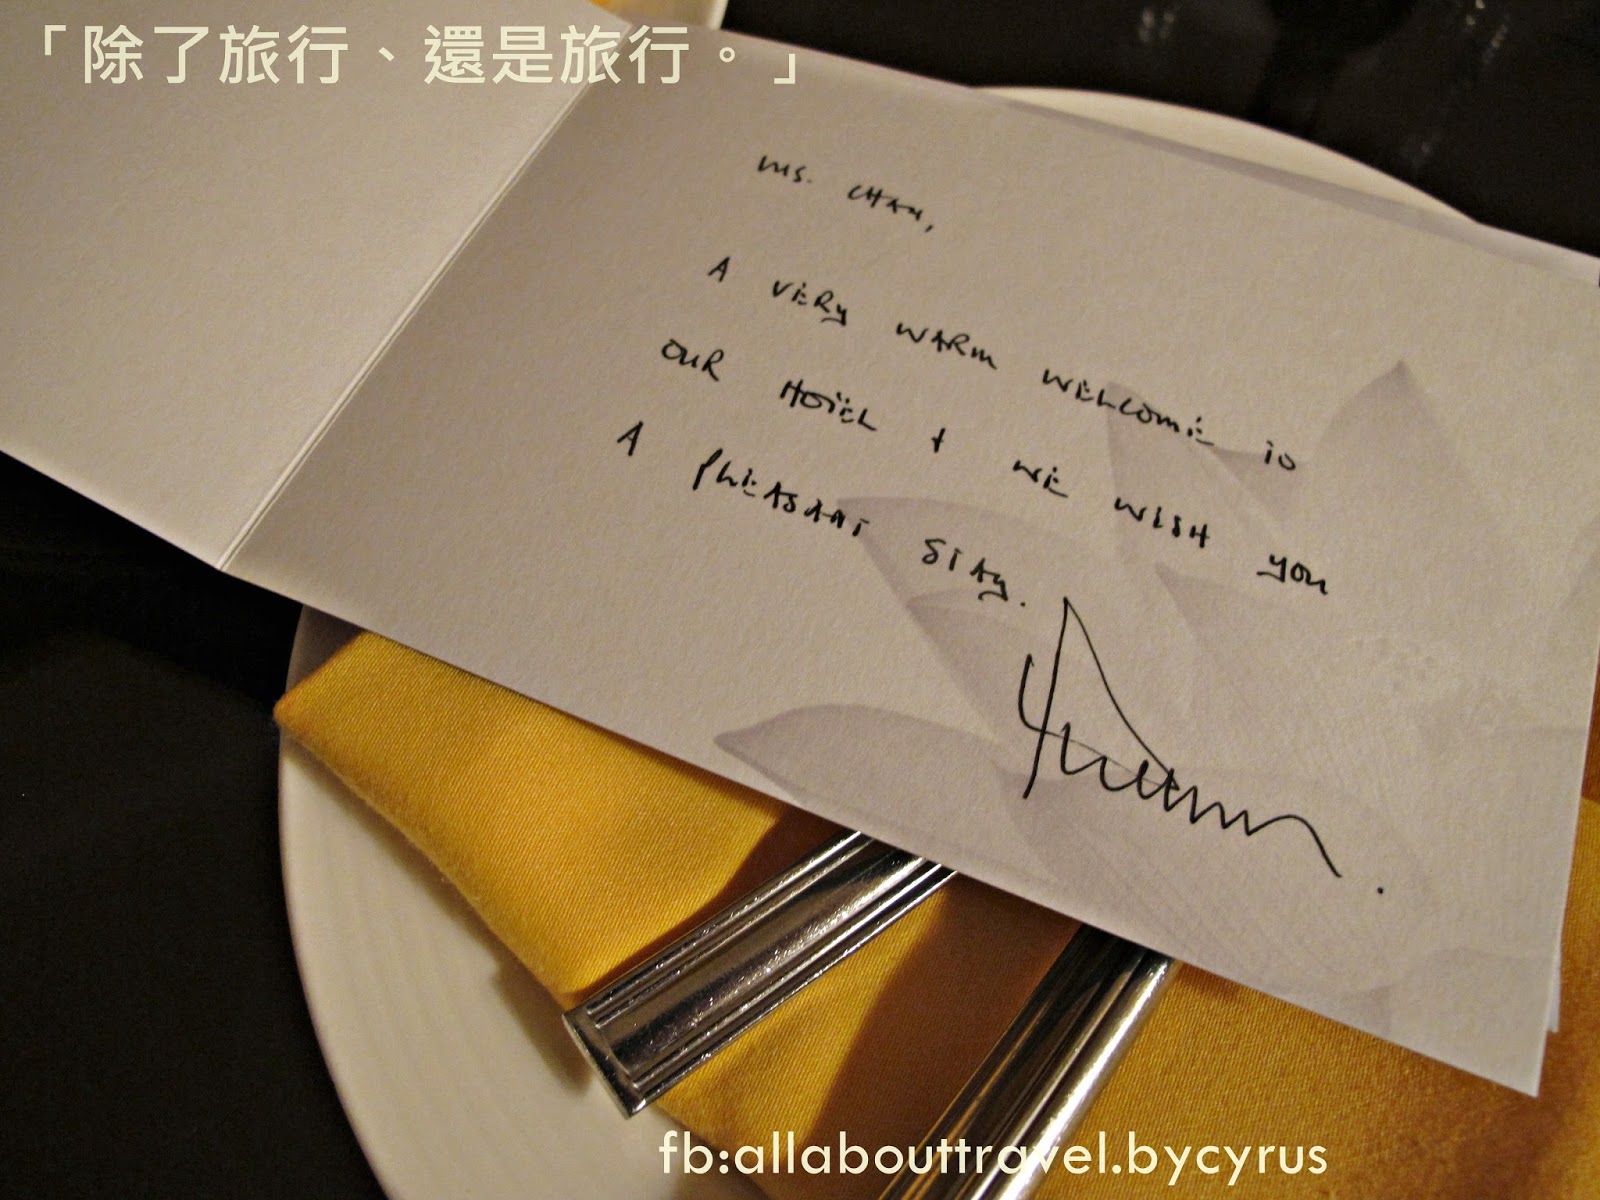 「除了旅行、還是旅行。」
MS. CHAN,
A VERY WARM WELCOME TO
OUR HOTEL & WE WISH YOU
A PLEASANT STAY.
fb:allabouttravel.bycyrus